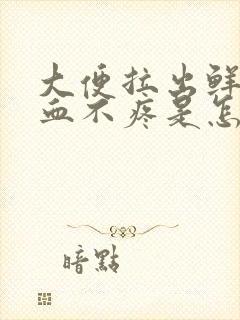 大便拉出鲜
血不疼是怎
暗點